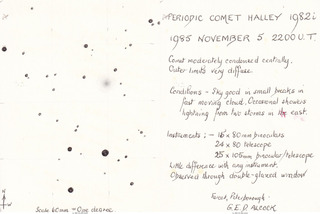 PERIODIC COMET HALLEY 1982i
1985 NOVEMBER 5 2200 U.T.
Comet moderately condensed centrally,
Outer limits very diffuse.
Conditions - Sky good in small breaks in
fast moving cloud. Occasional showers
lightning from two storms in the east.
Instruments :- 15 x 80mm binoculars
24 x 80 telescope
25 x 105mm binocular/telescope
Little difference with any instrument.
Observed through double-glazed window
Farcet, Peterborough.
G.E.D. ALCOCK
N
Scale 60mm = One degree.